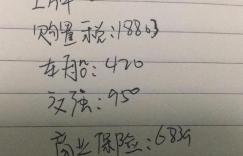 上牌
购置税:18803
车船:420
交强:950
商业保险:6839